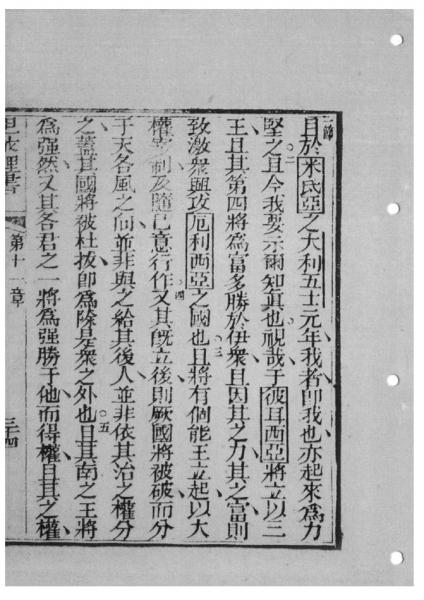 一節
且於米氐亞之大利五士元年我者卽我也亦起來爲力
堅之二且今我要示爾知眞也視哉于彼耳西亞將立以三
王且其第四將爲富多勝於伊衆且因其之力其之富則
致激衆與攻厄利西亞之國也三且將有個能王立起以大
權宰制及隨己意行作四又其旣立後則厥國將被破而分
于天各風之向並非與之給其後人並非依其治之權分
之蓋其國將被杜拔卽爲除是衆之外也五且其南之王將
爲强然又其各君之一將爲强勝于他而得權且其之權
但依理書 第十一章 三十四